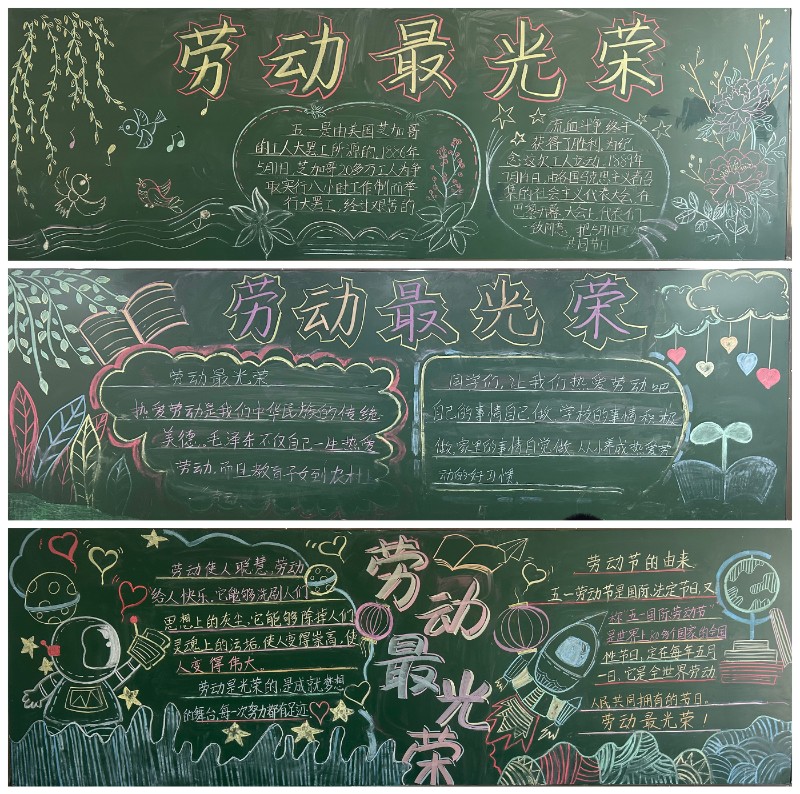 劳动最光荣
五一是由美国芝加哥
的工人大罢工所源的，1886年
5月1日，芝加哥20多万工人为争
取实行八小时工作制而举
行大罢工，经过艰苦的
流血斗争，终于
获得了胜利，为纪
念这次工人运动，1889年
7月14日，由各国马克思主义者召
集的社会主义代表大会，在
巴黎开幕，大会上，代表们
一致同意，把5月1日
共同节日
劳动最光荣
劳动最光荣
热爱劳动是我们中华民族的传统
美德，毛泽东不仅自己一生热爱
劳动，而且教育子女到农村
同学们，让我们热爱劳动吧
自己的事情自己做，学校的事情积极
做，家里的事情自觉做，从小养成热爱劳
动的好习惯。
劳动使人聪慧，劳动
给人快乐，它能够洗刷人们
思想上的灰尘，它能够除掉人们
灵魂上的污垢，使人变得崇高，使
人变得伟大。
劳动是光荣的，是成就梦想
的舞台，每一次努力都有足迹
劳动最光荣
劳动节的由来
五一劳动节是国际法定节日，又
称五一国际劳动节
是世界上80多个国家的全国
性节日，定在每年五月
一日，它是全世界劳动
人民共同拥有的节日。
劳动最光荣！